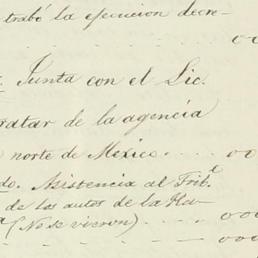 trabó la ejecucion decre-
oo
Junta con el Lic.
tratar de la agencia
norte de Mexico. . . . oo
do. Asistencia al Trib.l
de los autos de la Hev
(No se vieron) . . . ooo
ooo